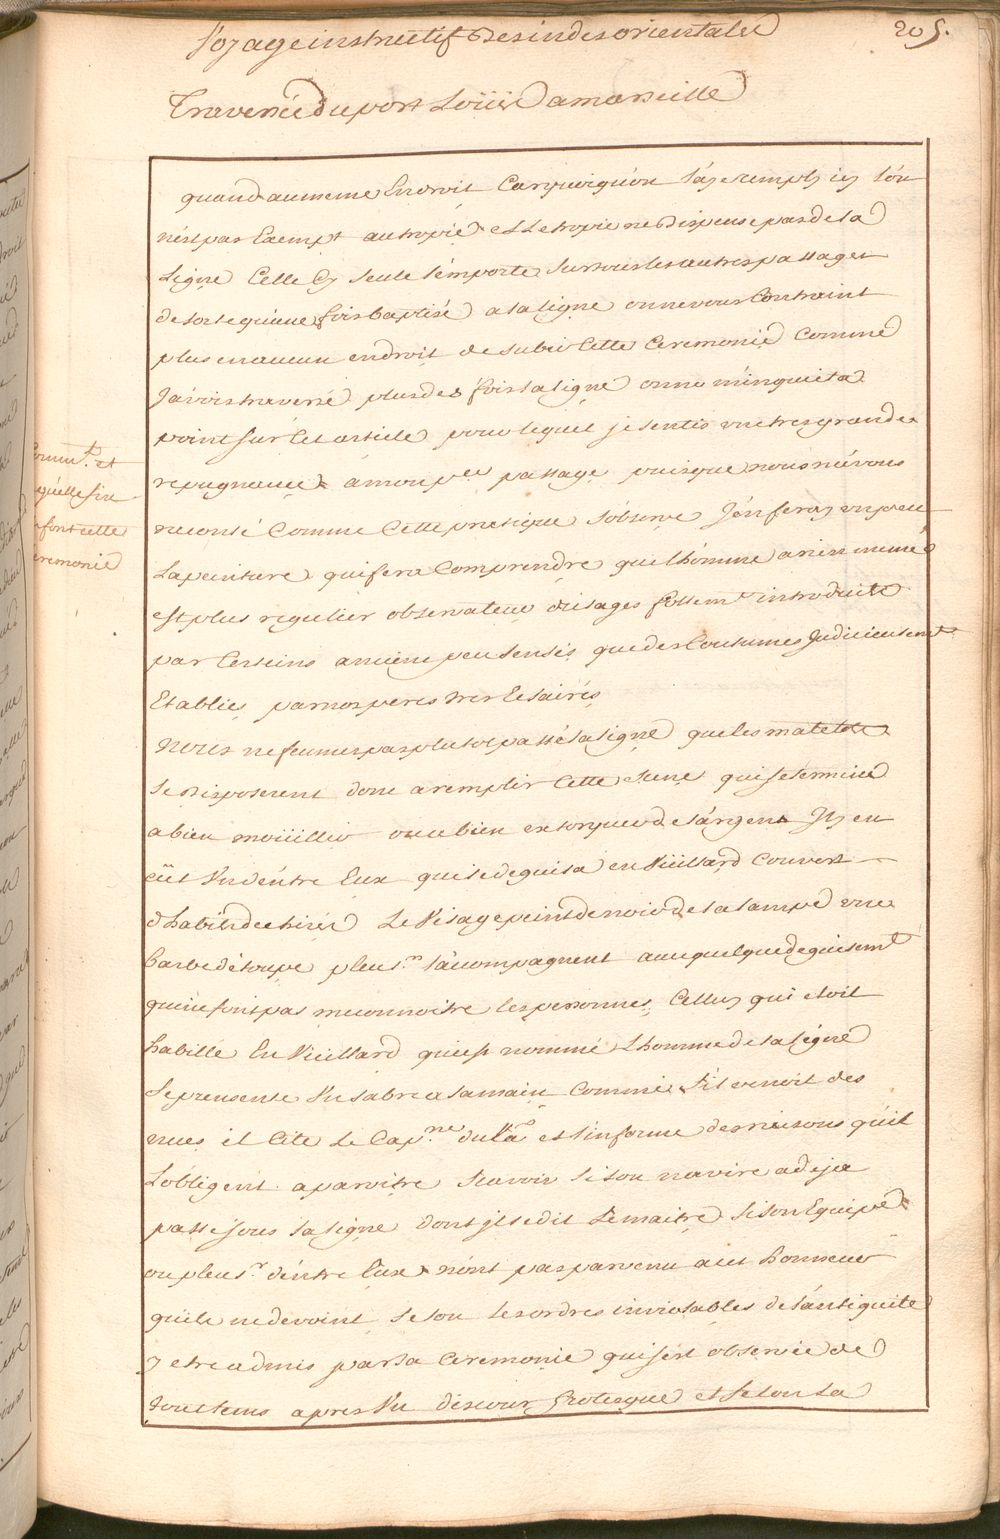 Voyage instructif des indes orientales
205.
Traversée du port Loüis a marseille
quand au meme Endroit Car quoiqu'on l'ay remply icy l'on
n'est par Exempt au tropic et Le tropic ne Dispense pas de la
Ligne Celle cy seule l'emporte sur tous les autres passages
de sorte qu'une fois baptisé a la ligne on ne vous Contraint
plus en aucun endroit de subir Cette Ceremonie Comme
J'avois traversé plus de fois la ligne on ne m'inquieta
point sur Cet article pour lequel je sentis une tres grande
repugnance a mon p.er passage puisque nous n'avons
raconté Comme Cette pratique s'observe J'en feray un peu
La peinture qui fera Comprendre que l'homme a rien meme
est plus regulier observateur d'usages follem.t introduits
par Certains anciens peu sensés que des Coutumes Judicieusem.t
Etablies par nos peres tres Eclairés
Comm.t et
qu'elle fin
font cette
ceremonie
Nous ne feumes pas plutot passé la ligne que les matelots
se disposerent donc a remplir Cette scene qui se termine
a bien moüiller ou a bien extorquer de l'argent Il y en
eüt Un d'entre Eux qui se deguisa en Vieillard Couvert
d'habits dechirés Le Visage peint de noir de la lampe une
barbe d'étoupe pleus.rs l'acompagnent avec quelque deguisem.t
qui ne font pas meconnoitre les personnes, Celluy qui etoit
habillé En Vieillard qui est nommé L'homme de la ligne
se presente Un sabre a la main Comme s'il venoit des
nues il Cite le Cap.ne du V.au et l'informe des raisons qu'il
L'obligent a paroitre scavoir si son navire a deja
passé sous la ligne dont il se dit Le maitre si son Equipé
ou pleus.rs d'entre Eux n'ont pas parvenu a cet honneur
qu'ils ne devoint selon les ordres inviolables de l'antiquité
y etre admis par la Ceremonie qui s'est observée de
tout tems apres Un discour Grotesque et selon la